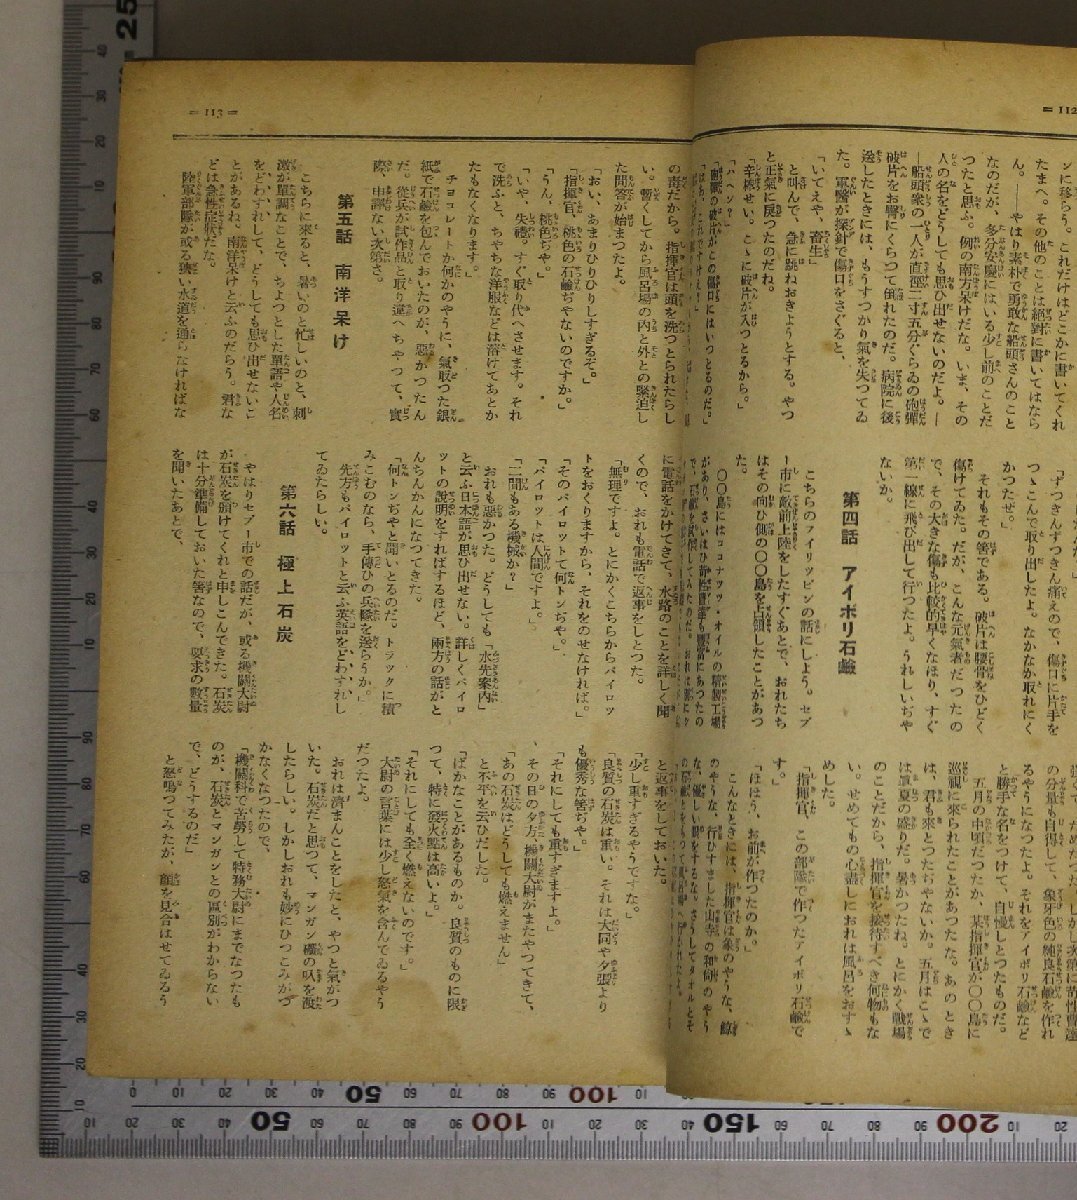 = 112
ンに移らう。これだけはどこかに書いてくれ
たまへ。その他のことは絕對に書いてはなら
ん。――やはり素朴で勇敢な船頭さんのこと
なのだが、多分安慶にはいる少し前のことだ
つたと思ふ。例の南方呆けだな。いま、その
人の名をどうしても思ひ出せないのだよ。――
―船頭衆の一人が直徑二寸五分くらゐの砲彈
破片をお臀にくらつて倒れたのだ。病院に後
送したときには、もうすつかり氣を失つてゐ
た。軍醫が探針で傷口をさぐると、
「いてえや、畜生」
と叫んで、急に跳ねおきようとする。やつ
と正氣に戾つたのだね。
「辛棒せい。こゝに破片が入つとるから。」
「ハヘン?」
「砲彈の破片がこの傷口にはいつとるのだ。」
「ずつきんずつきん痛えので、傷口に片手を
つゝこんで取り出したよ。なかなか取れにく
かつたぜ。」
それもその筈である。破片は腰骨をひどく
傷けてゐた。だが、こんな元氣者だつたの
で、その大きな傷も比較的早くなほり、すぐ
第一線に飛び出して行つたよ。うれしいぢや
ないか。
第四話 アイボリ石鹼
こちらのフイリッピンの話にしよう。セブ
ー市に敵前上陸をしたすぐあとで、おれたち
はその向ひ側の〇〇島を占領したことがあつ
た。
〇〇島にはココナッツ・オイルの精製工場
があり、さいはひ苛性曹達も豐富にあつたの
の分量も自得して、象牙色の純良石鹼を作れ
るやうになつたよ。それをアイボリ石鹼など
と勝手な名をつけて、自慢しとつたものだ。
五月の中頃だつたか、某指揮官が〇〇島に
巡視に來られたことがあつたな。あのとき
は、君も來とつたぢやないか。五月はこゝで
は眞夏の盛りだ。暑かつたね。とにかく戰場
のことだから、指揮官を接待すべき何物もな
い。せめてもの心盡しにおれは風呂をおすゝ
めした。
「指揮官、この部隊で作つたアイボリ石鹼で
す。」
「ほほう、お前が作つたのか。」
こんなときには、指揮官は象のやうな、鯨
のやうな、行ひすました山寺の和尙のやう
な、優しい眼をするな。さうしてタオルとそ
= 113 =
の毒だから。指揮官は頭を洗つとられたらし
い。暫くしてから風呂場の內と外との緊迫し
た問答が始まつたよ。
「おい、あまりひりひりしすぎるぞ。」
「指揮官、桃色の石鹼ぢやないのですか。」
「うん、桃色ぢや。」
「いや、失禮。すぐ取り代へさせます。それ
で洗ふと、ちやちな洋服などは溶けてあとか
たもなくなります。」
チョコレートか何かのやうに、氣取つた銀
紙で石鹼を包んでおいたのが、惡かつたん
だ。從兵が試作品と取り違へちやつて、實
際、申譯ない次第さ。
第五話 南洋呆け
こちらに來ると、暑いのと忙しいのと、刺
激が單調なことで、ちよつとした單語や人名
をどわすれして、どうしても思ひ出せないこ
とがあるね。南洋呆けと云ふのだらう。君な
どは急性症狀だな。
陸軍部隊が或る狹い水道を通らなければな
に電話をかけてきて、水路のことを詳しく聞
くので、おれも電話で返事をしとつた。
「無理ですよ。とにかくこちらからパイロッ
トをおくりますから、それをのせなければ。」
「そのパイロットて何トンぢや。」
「パイロットは人間ですよ。」
「二間もある機械か?」
おれも惡かつた。どうしても「水先案內」
と云ふ日本語が思ひ出せない。詳しくパイロ
ットの說明をすればするほど、兩方の話がと
んちんかんになつてきた。
「何トンぢやと聞いとるのだ。トラックに積
みこむのなら、手傳ひの兵隊を送らうか。」
先方もパイロットと云ふ英語をどわすれし
てゐたらしい。
第六話 極上石炭
やはりセブー市での話だが、或る機關大尉
が石炭を頒けてくれと申しこんできた。石炭
は十分準備しておいた筈なので、要求の數量
を聞いたあとで、
と返事をしておいた。
「少し重すぎるやうですな。」
「良質の石炭は重い。それは大同や夕張より
も優秀な筈ぢや。」
「それにしても重すぎますよ。」
その日の夕方、機關大尉がまたやつてきて、
「あの石炭はどうしても燃えません」
と不平を云ひだした。
「ばかなことがあるものか。良質のものに限
つて、特に發火點は高いよ。」
「それにしても全く燃えないのです。」
大尉の言葉には少し怒氣を含んでゐるやう
だつたよ。
おれは濟まんことをしたと、やつと氣がつ
いた。石炭だと思つて、マンガン礦の叺を渡
したらしい。しかしおれも妙にひつこみがつ
かなくなつたので、
「機關科で苦勞して特務大尉にまでなつたも
のが、石炭とマンガンとの區別がわからない
で、どうするのだ」
と怒鳴つてみたが、顏を見合はせてゐるう